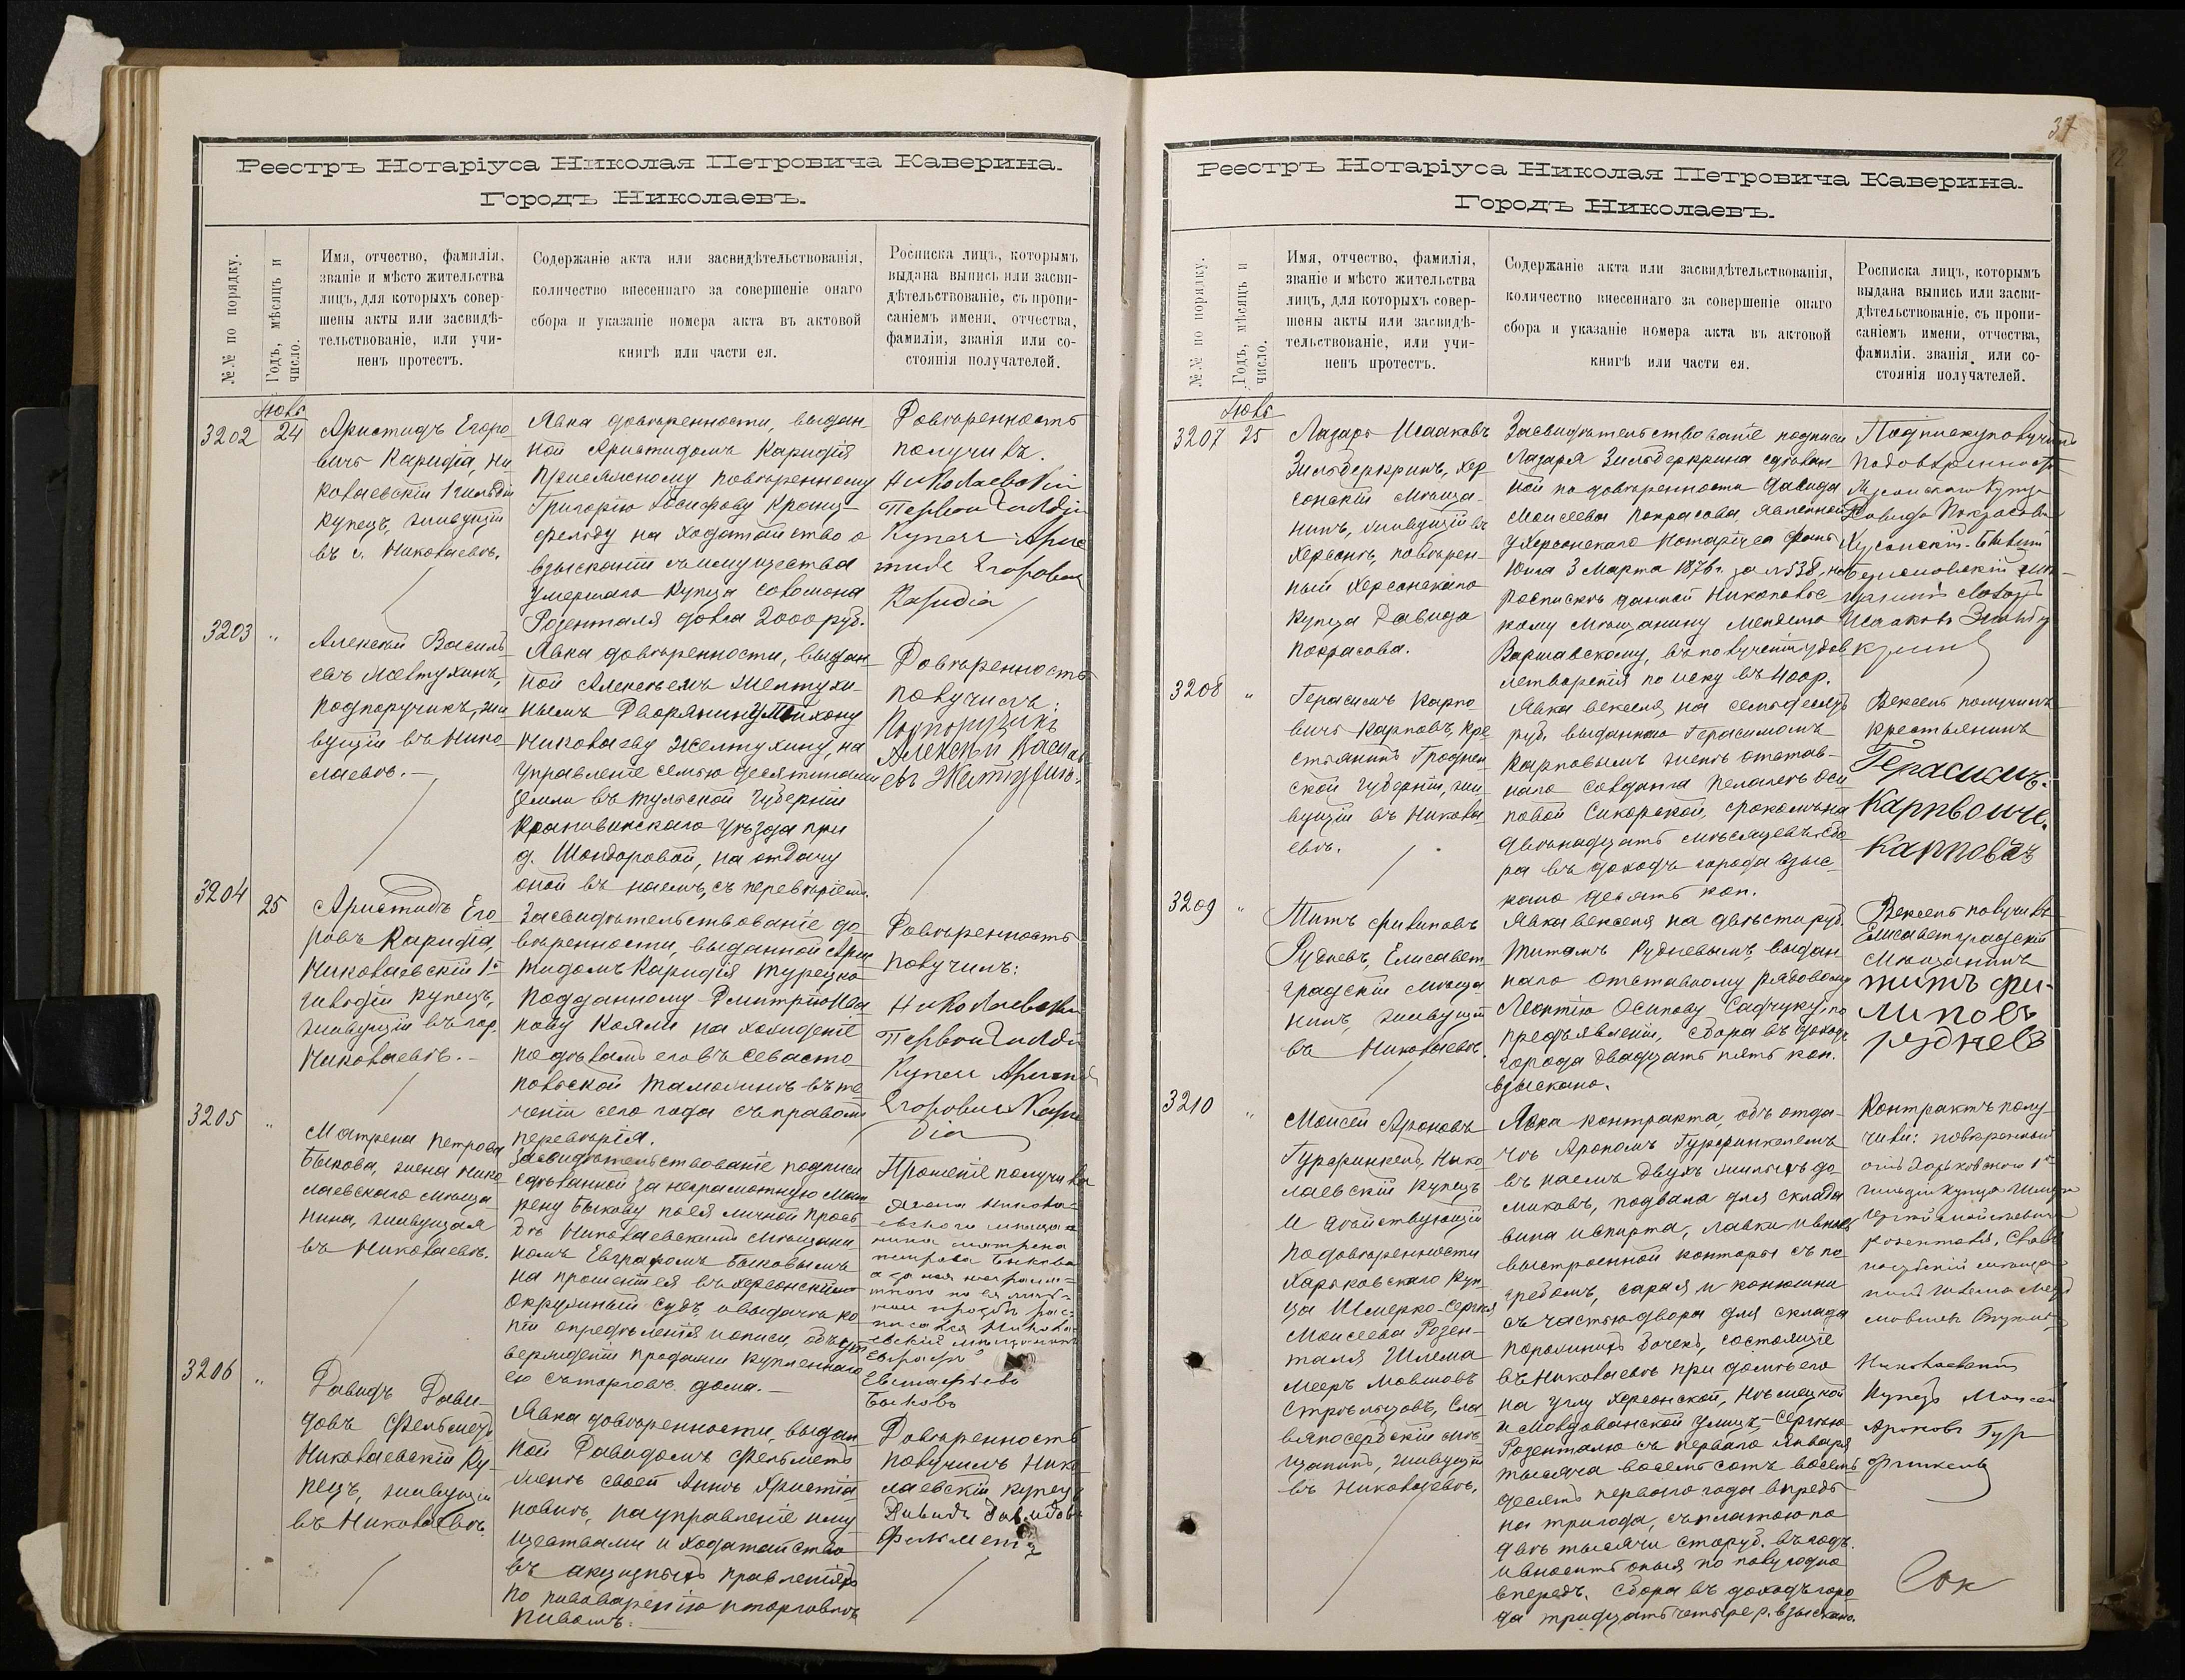 Реестръ Нотаріуса Николая Петровича Каверина.
Городъ Николаевъ.
№№ по порядку.
Годъ, мѣсяцъ и
число.
Имя, отчество, фамилія,
званіе и мѣсто жительства
лицъ, для которыхъ совер-
шены акты или засвидѣ-
тельствованіе, или учи-
ненъ протестъ.
Содержаніе акта или засвидѣтельствованія,
количество внесеннаго за совершеніе онаго
сбора и указаніе номера акта въ актовой
книгѣ или части ея.
Росписка лицъ, которымъ
выдана выпись или засви-
дѣтельствованіе, съ пропи-
саніемъ имени, отчества,
фамиліи, званія или со-
стоянія получателей.
3202
24
Аристидъ Егоро-
вичъ Каридія, Ни-
колаевскій 1 гильдіи
купецъ, живущій
въ г. Николаевѣ.
Явка довѣренности, выдан-
ной Аристидомъ Каридія
присяжному повѣренному
Григорію Іосифову Кранц-
фельду на ходатайство о
взысканіи съ имущества
умершаго купца Соломона
Розенталя долга 2000 руб.
Довѣренность
получилъ.
Николаевскій
Первой Гильдіи
Купецъ Арис
тидъ Егоровичъ
Каридіа
3203
"
Алексѣй Василь-
евъ Желтухинъ,
подпоручикъ, жи
вущій въ Нико-
лаевѣ. —
Явка довѣренности, выдан-
ной Алексѣемъ Желтухи-
нымъ Дворянину Тихону
Николаеву Желтухину, на
управленіе семью десятинами
земли въ Тульской губерніи
Крапивинскаго уѣзда при
д. Шондоровой, на отдачу
оной въ наемъ, съ перевѣріемъ.
Довѣренность
получилъ:
Подпоручикъ
Алексѣй Василь
евъ Желтухинъ.
3204
25
Аристидъ Его
ровъ Каридія,
Николаевскій 1й
гильдіи купецъ,
живущій въ гор.
Николаевѣ. —
Засвидѣтельствованіе до-
вѣренности, выданной Арис
тидомъ Каридія Турецко-
подданному Дмитрію Ива
нову Коями на хожденіе
по дѣламъ его въ Севасто
польской таможнѣ въ те
ченіи сего года съ правомъ
перевѣрія.
Довѣренность
получилъ:
Николаевскій
Первой Гильдіи
Купецъ Аристид
Егоровичъ Кари
діа
3205
"
Матрена Петрова
Быкова, жена Нико
лаевскаго мѣща
нина, живущая
въ Николаевѣ.
Засвидѣтельствованіе подписи
сдѣланной за неграмотную Мат
рену Быкову по ея личной прось
бѣ Николаевскимъ мѣщани
номъ Евграфомъ Быковымъ
на прошеніи ея въ Херсонскій
Окружный судъ, о выдачѣ ко
піи опредѣленія и описи, объ ут
вержденіи продажи купленнаго
ею съ торговъ дома. —
Прошеніе получила
жена Никола-
евскаго мѣща
нина Матрена
Петрова Быкова
а за нея неграм-
тною по ея лич-
ной прозбѣ рас-
писался Никола-
евскій мѣщанинъ
Евграфъ
Евстафьевъ
Быковъ
3206
"
Давидъ Дави-
довъ Фельметъ
Николаевскій Ку-
пецъ, живущій
въ Николаевѣ.
Явка довѣренности, выдан
ной Давидомъ Фельметъ
женѣ своей Аннѣ Христіа
новнѣ, на управленіе иму
ществами и ходатайство
въ акцизныхъ правленіяхъ
по пивоваренію и торговлѣ
пивомъ. —
Довѣренность
получилъ Нико
лаевскій купецъ
Давидъ Давидовъ
Фельметъ
37
Реестръ Нотаріуса Николая Петровича Каверина.
Городъ Николаевъ.
№№ по порядку.
Годъ, мѣсяцъ и
число.
Имя, отчество, фамилія,
званіе и мѣсто жительства
лицъ, для которыхъ совер-
шены акты или засвидѣ-
тельствованіе, или учи-
ненъ протестъ.
Содержаніе акта или засвидѣтельствованія,
количество внесеннаго за совершеніе онаго
сбора и указаніе номера акта въ актовой
книгѣ или части ея.
Росписка лицъ, которымъ
выдана выпись или засви-
дѣтельствованіе, съ пропи-
саніемъ имени, отчества,
фамиліи, званія или со-
стоянія получателей.
3207
25
Лазарь Исааковъ
Зильберкринъ, Хер
сонскій мѣща-
нинъ, живущій въ
Херсонѣ, повѣрен-
ный Херсонскаго
купца Давида
Покрасова.
Засвидѣтельствованіе подписи
Лазаря Зильберкрина сдѣлан
ной по довѣренности Давида
Моисеева Покрасова, явленной
у Херсонскаго Нотаріуса
3 Марта 1876 г. за № 538, на
роспискѣ данной Никопольс-
кому мѣщанину Менделю
Варшавскому, въ полученіи удов
летворенія по иску въ 400 р.
Подписку получилъ
по довѣренности
Херсонскаго Купца
Давида Покрасова
Херсонскій
мѣ-
щанинъ Лазарь
Исааковъ Зильбер
кринъ
3208
"
Герасимъ Карпо
вичъ Карповъ, кре
стьянинъ Гроднен
ской губерніи, жи
вущій въ Никола
евѣ.
Явка векселя, на семьдесятъ
руб. выданнаго Герасимомъ
Карповымъ женѣ отстав-
наго солдата Пелагеѣ Оси
повой Сикорской, срокомъ на
двѣнадцать мѣсяцевъ. Сбо
ра въ доходъ города взыс-
кано десять коп.
Вексель получилъ
крестьянинъ
Герасимъ.
Карповиче.
Карповъ
3209
"
Титъ Филиповъ
Рудневъ, Елисавет
градскій мѣща
нинъ, живущій
въ Николаевѣ.
Явка векселя на двѣсти руб.
Титомъ Рудневымъ, выдан
наго отставному рядовому
Леонтію Осипову Савчуку, по
предъявленіи, сбора въ доходъ
города двадцать пять коп.
взыскано.
Вексель получилъ
Елисаветградскій
Мѣщанинъ
титъ фи-
липовъ
рудневъ
3210
"
Моисей Ароновъ
Гурфинкель, Нико
лаевскій купецъ
и дѣйствующій
по довѣренности
Харьковскаго Куп-
ца Шмерко-Сергѣя
Моисеева Розен-
таля Шлема
Мееръ Мовшовъ
Стрѣльцовъ, Сла-
вяносербскій мѣ-
щанинъ, живущій
въ Николаевѣ.
Явка контракта, объ отда-
чѣ Арономъ Гурфинкелемъ
въ наемъ двухъ жилыхъ до
миковъ, подвала для склада
вина и спирта, лавки и вновь
выстроенной конторы съ по
гребомъ, сарая и конюшни
съ частью двора для склада
порожнихъ бочекъ, состоящіе
въ Николаевѣ при домѣ его
на углу Херсонской, Нѣмецкой
и Молдованской улицъ, — Сергѣю
Розенталю съ перваго Января
тысяча восемьсотъ восемь
десятъ перваго года впредь
на три года, съ платою по
двѣ тысячи сто руб. въ годъ.
и вноситъ оныя по полугодно
впередъ. Сбора въ доходъ горо
да тридцать четыре р. взыскано.
Контрактъ полу-
чили: повѣренный
отъ Харьковскаго 1й
гильдіи купца Шмерк
Розенталя, Славя
носербскій мѣща
нинъ Шлема Меер
Николаевскій
Купецъ Моисей
Ароновъ Гур
финкель